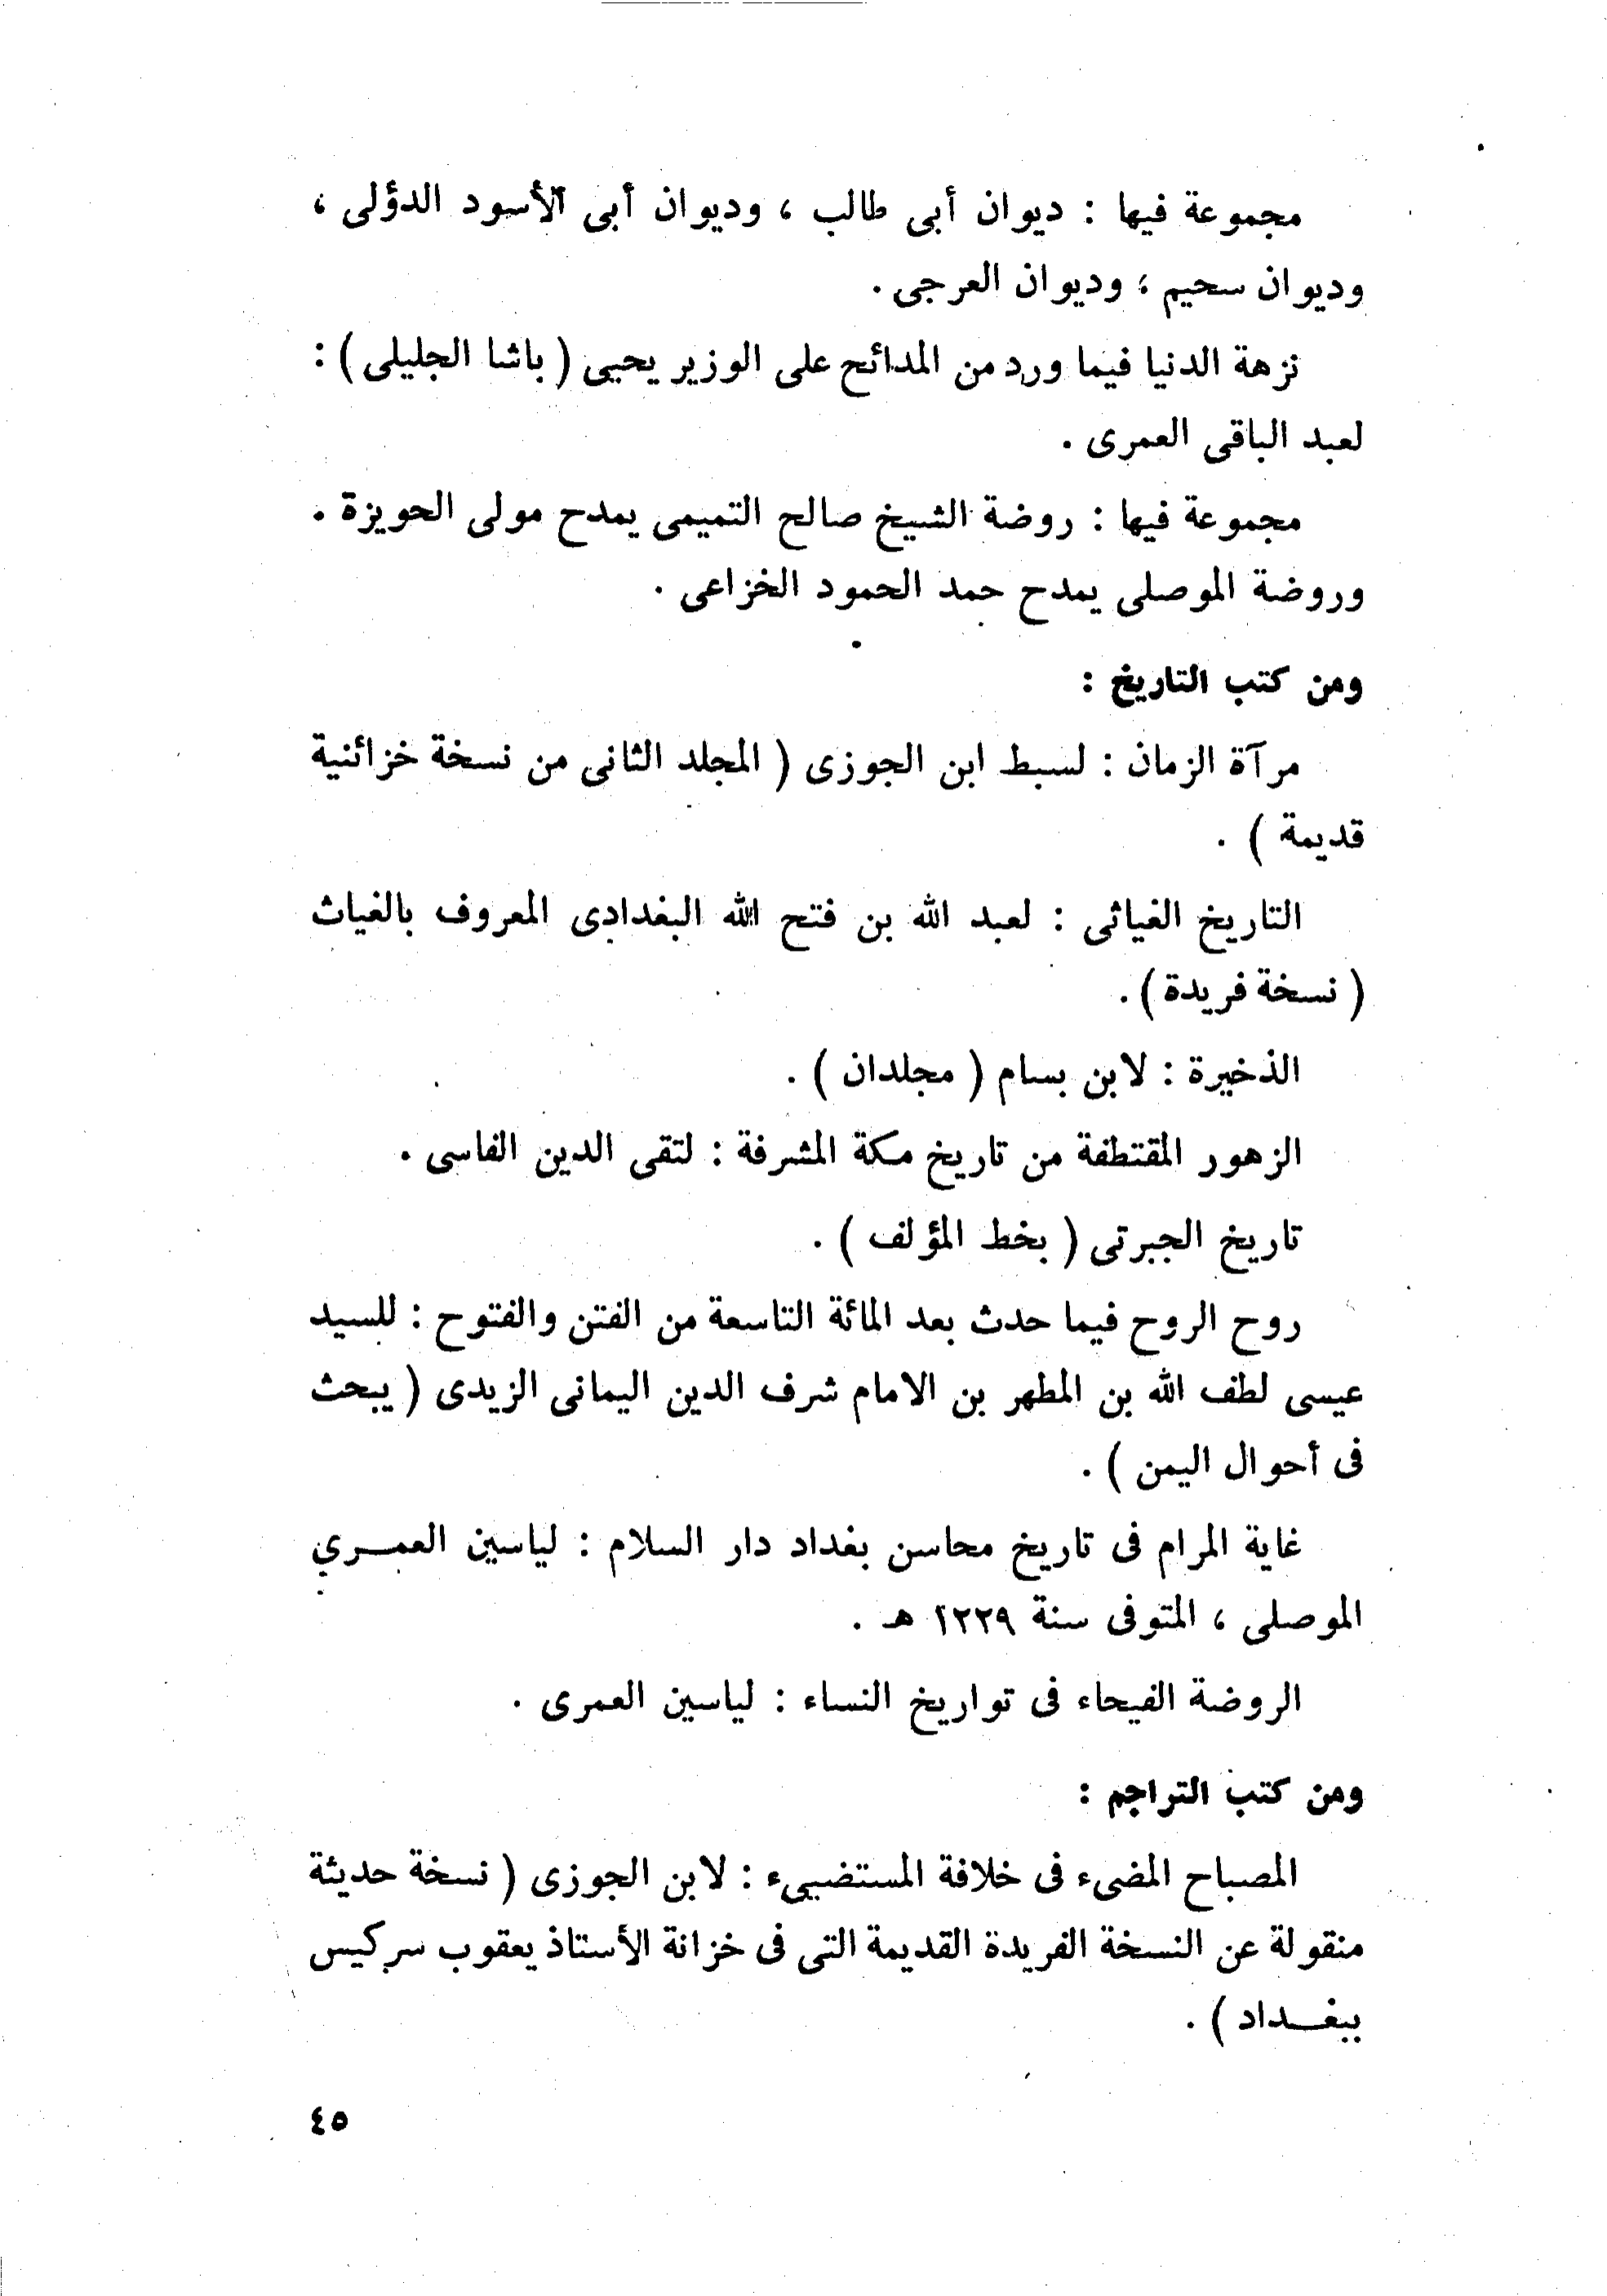 مجموعة فيها : ديوان أبى طالب ، وديوان أبى الأسود الدؤلى ،
وديوان سحيم ، وديوان العرجى .
نزهة الدنيا فيما ورد من المدائح على الوزير يحيى ( باشا الجليلى ) :
لعبد الباقى العمرى .
مجموعة فيها : روضة الشيخ صالح التميمى يمدح مولى الحويزة .
وروضة الموصلى يمدح حمد الحمود الخزاعى .
ومن كتب التاريخ :
مرآة الزمان : لسبط ابن الجوزى ( المجلد الثانى من نسخة خزائنية
قديمة ) .
التاريخ الغياثى : لعبد الله بن فتح الله البغدادى المعروف بالغياث
( نسخة فريدة ) .
الذخيرة : لابن بسام ( مجلدان ) .
الزهور المقتطفة من تاريخ مكة المشرفة : لتقى الدين الفاسى .
تاريخ الجبرتى ( بخط المؤلف ) .
روح الروح فيما حدث بعد المائة التاسعة من الفتن والفتوح : للسيد
عيسى لطف الله بن المطهر بن الامام شرف الدين اليمانى الزيدى ( يبحث
فى أحوال اليمن ) .
غاية المرام فى تاريخ محاسن بغداد دار السلام : لياسين العمـــري
الموصلى ، المتوفى سنة ١٢٢٩ هـ .
الروضة الفيحاء فى تواريخ النساء : لياسين العمرى .
ومن كتب التراجم :
المصباح المضىء فى خلافة المستضيىء : لابن الجوزى ( نسخة حديثة
منقولة عن النسخة الفريدة القديمة التى فى خزانة الأستاذ يعقوب سركيس
ببغـــداد ) .
٤٥